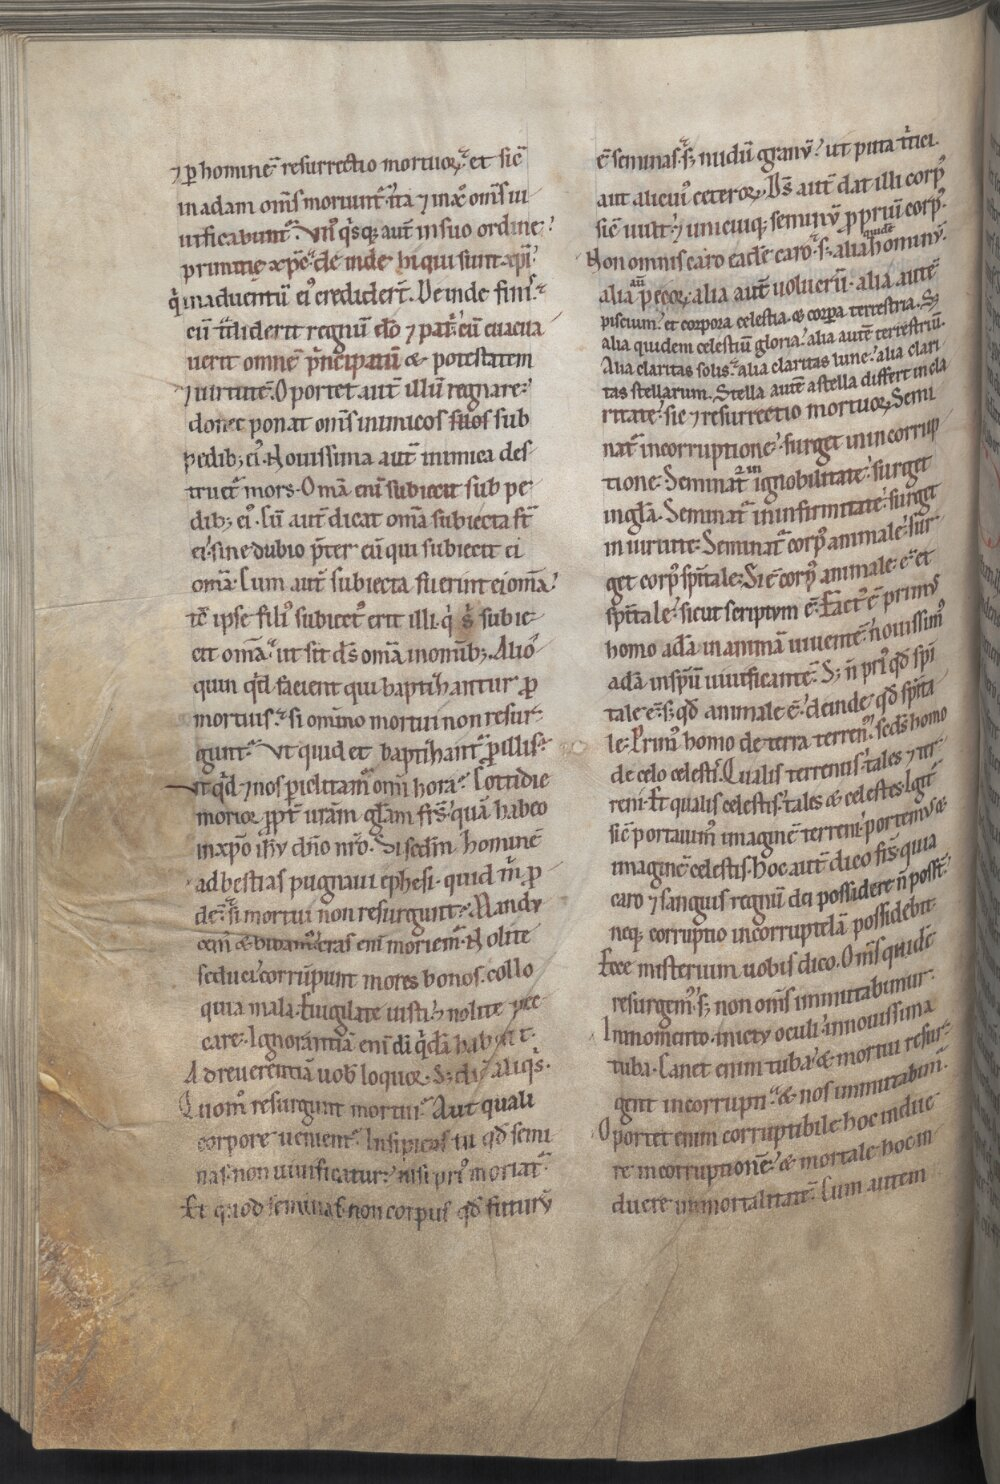 ⁊ ꝑ hominē resurrectio mortuoꝝ. et sic̄
in adam om̄s moriunt̄. ita ⁊ in xp̄o om̄s ui
uificabunt̄. Vn᷒ qͥsqꝫ aut̄ in suo ordine.
primitie xp̄c. deinde hi qui sunt xp̄i.
qͥ in aduentū ei᷒ credidert̄. Deinde finis.
cū tͣdiderit regnū dō ⁊ patͥ. cū euacua
uerit omnē pͥncipatū & potestatem
⁊ uirtutē. Oportet aut̄ illū regnare.
donec ponat om̄s inimicos suos sub
pedibꝫ ei᷒. Nouissima aut̄ inimica des
truet̄ mors. Om̄a eni subiecit sub pe
dibꝫ ei᷒. Cū aut̄ dicat om̄a subiecta st̄
ei. sine dubio p̄ter eū qui subiecit ei
om̄a. Cum aut̄ subiecta fuerint ei om̄a.
tc̄ ipse fili᷒ subiect᷒ erit illi. qͥ s̄ subie
cit om̄a. ut sit ds̄ om̄a in om̄ibꝫ. Alio
quin qͥd facient qui baptizantur ꝓ
mortuis. si omino mortui non resur
gunt. Vt quid et baptizant̄ ꝓ illis.
Vt qͥd ⁊ nos ꝑiclitamͬ om̄i hora. Cottidie
morior ꝓpt̄ ur̄am gl̄am fr̄s. quā habeo
in xp̄o ih̄u dn̄o nr̄o. Si scd̄m hominē
ad bestias pugnaui ephesi. quid m̄ ꝓ
dē. si mortui non resurgunt. Mandu
cem᷒ & bibam᷒. cras eni moriemͬ. Nolite
seduci. corrūpunt mores bonos. collo
quia mala. Euigilate iusti. ⁊ nolite pec
care. Ignorantiā eni di qͥdā habent.
Ad reuerentiā uob̄ loquor. Sꝫ dic̄ aliqͥs.
Quom̄ resurgunt mortui. Aut quali
corpore uenient. Insipiens tu qd̄ semi
nas. non uiuificatur. nisi pri᷒ moriat̄.
Et quod seminas. non corpus qd̄ futurū
ē seminas. sꝫ nudū granū. ut puta tͥtici.
aut alicui᷒ ceteroꝝ. Ds̄ aut̄ dat illi corp᷒
sic̄ uult. ⁊ unicuiqꝫ seminū ꝓpriū corp᷒.
Non omnis caro eadē caro. s. alia quidē hominū.
alia aut̄ pecoꝝ. alia aut̄ uolucrū. alia autē
piscium. et corpora celestia. & corpora terrestria. Sꝫ
alia quidem celestiū gloria. alia autē terrestriū.
Alia claritas solis. alia claritas lune. alia clari
tas stellarum. Stella autē a stella differt in cla
ritate. sic ⁊ resurrectio mortuoꝝ. Semi
nat̄ in corruptione. surget in incorrup
tione. Seminat̄ in ignobilitate. surget
in gl̄a. Seminat̄ in infirmitate. surget
in uirtute. Seminat̄ corp᷒ animale. sur
get corp᷒ sp̄itale. Si ē corp᷒ animale. ē et
sp̄itale. sicut scriptum ē. Fact᷒ ē prim᷒
homo adā in animā uiuentē. nouissim᷒
adā in sp̄m uiuificantē. Sꝫ n̄ pri᷒ qd̄ sp̄i
tale ē. sꝫ qd̄ animale ē. deinde qd̄ sp̄ita
le. Prim᷒ homo de terra terren᷒. scd̄s homo
de celo celestis. Qualis terrenus. tales ⁊ ter
reni. Et qualis celestis. tales & celestes. Igit̄
sic̄ portauim᷒ imaginē terreni. portem᷒ &
imaginē celestis. Hoc aut̄ dico fr̄s. quia
caro ⁊ sanguis regnū dei possidere n̄ posst̄.
neqꝫ corruptio incorruptelā possidebit.
Ecce misterium uobis dico. Om̄s quidē
resurgem᷒. sꝫ non om̄s inmutabimur.
In momento. in ictu oculi. in nouissima
tuba. Canet enim tuba. & mortui resur
gent incorrupti. & nos inmutabimͬ.
Oportet enim corruptibile hoc indue
re incorruptionē. & mortale hoc in
duere inmortalitatē. Cum autem